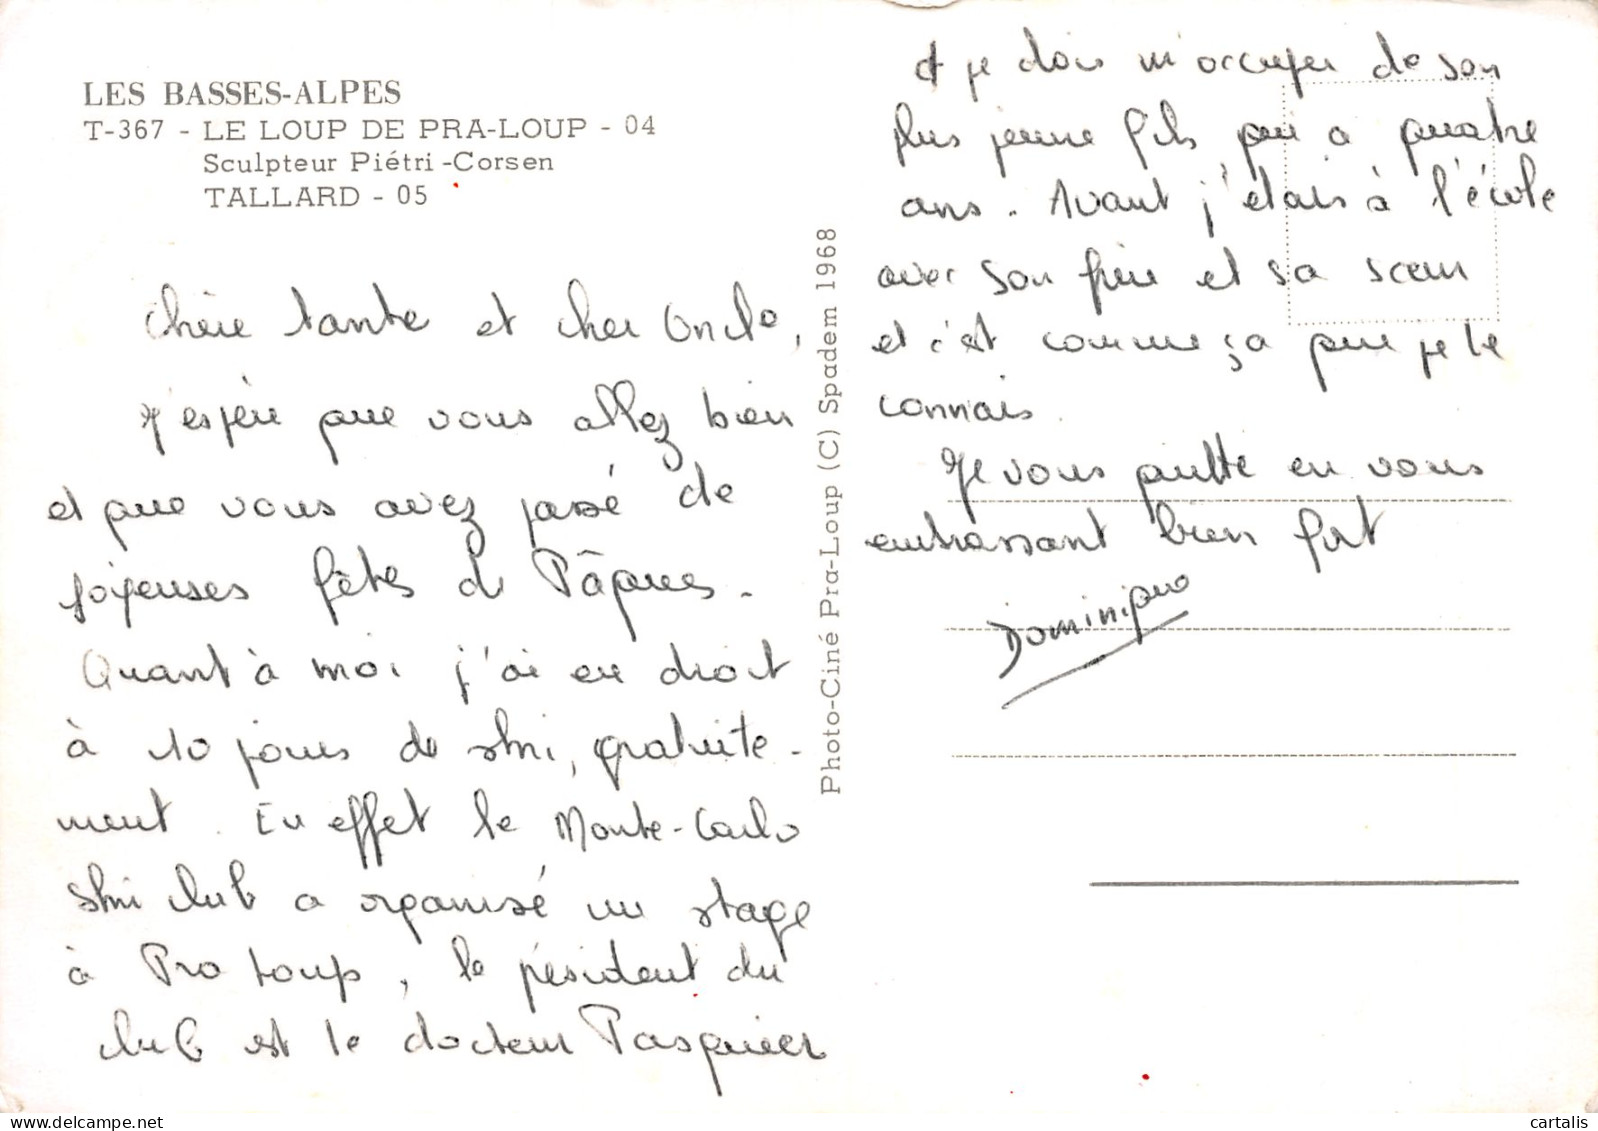 LES BASSES-ALPES
T-367 - LE LOUP DE PRA-LOUP - 04
Sculpteur Piétri-Corsen
TALLARD - 05
Chère tante et cher Oncle,
J'espère que vous allez bien
et que vous avez passé de
joyeuses fêtes de Pâques.
Quant à moi j'ai eu droit
à 10 jours de ski, gratuite-
ment. En effet le Monte-Carlo
ski club a organisé un stage
à Pra Loup, le président du
club est le docteur Pasquier
Photo-Ciné Pra-Loup (C) Spadem 1968
et je dois m'occuper de son
plus jeune fils qui a quatre
ans. Avant j'étais à l'école
avec son frère et sa soeur
et c'est comme ça que je le
connais.
Je vous quitte en vous
embrassant bien fort
Dominique
cartalis
www.delcampe.net